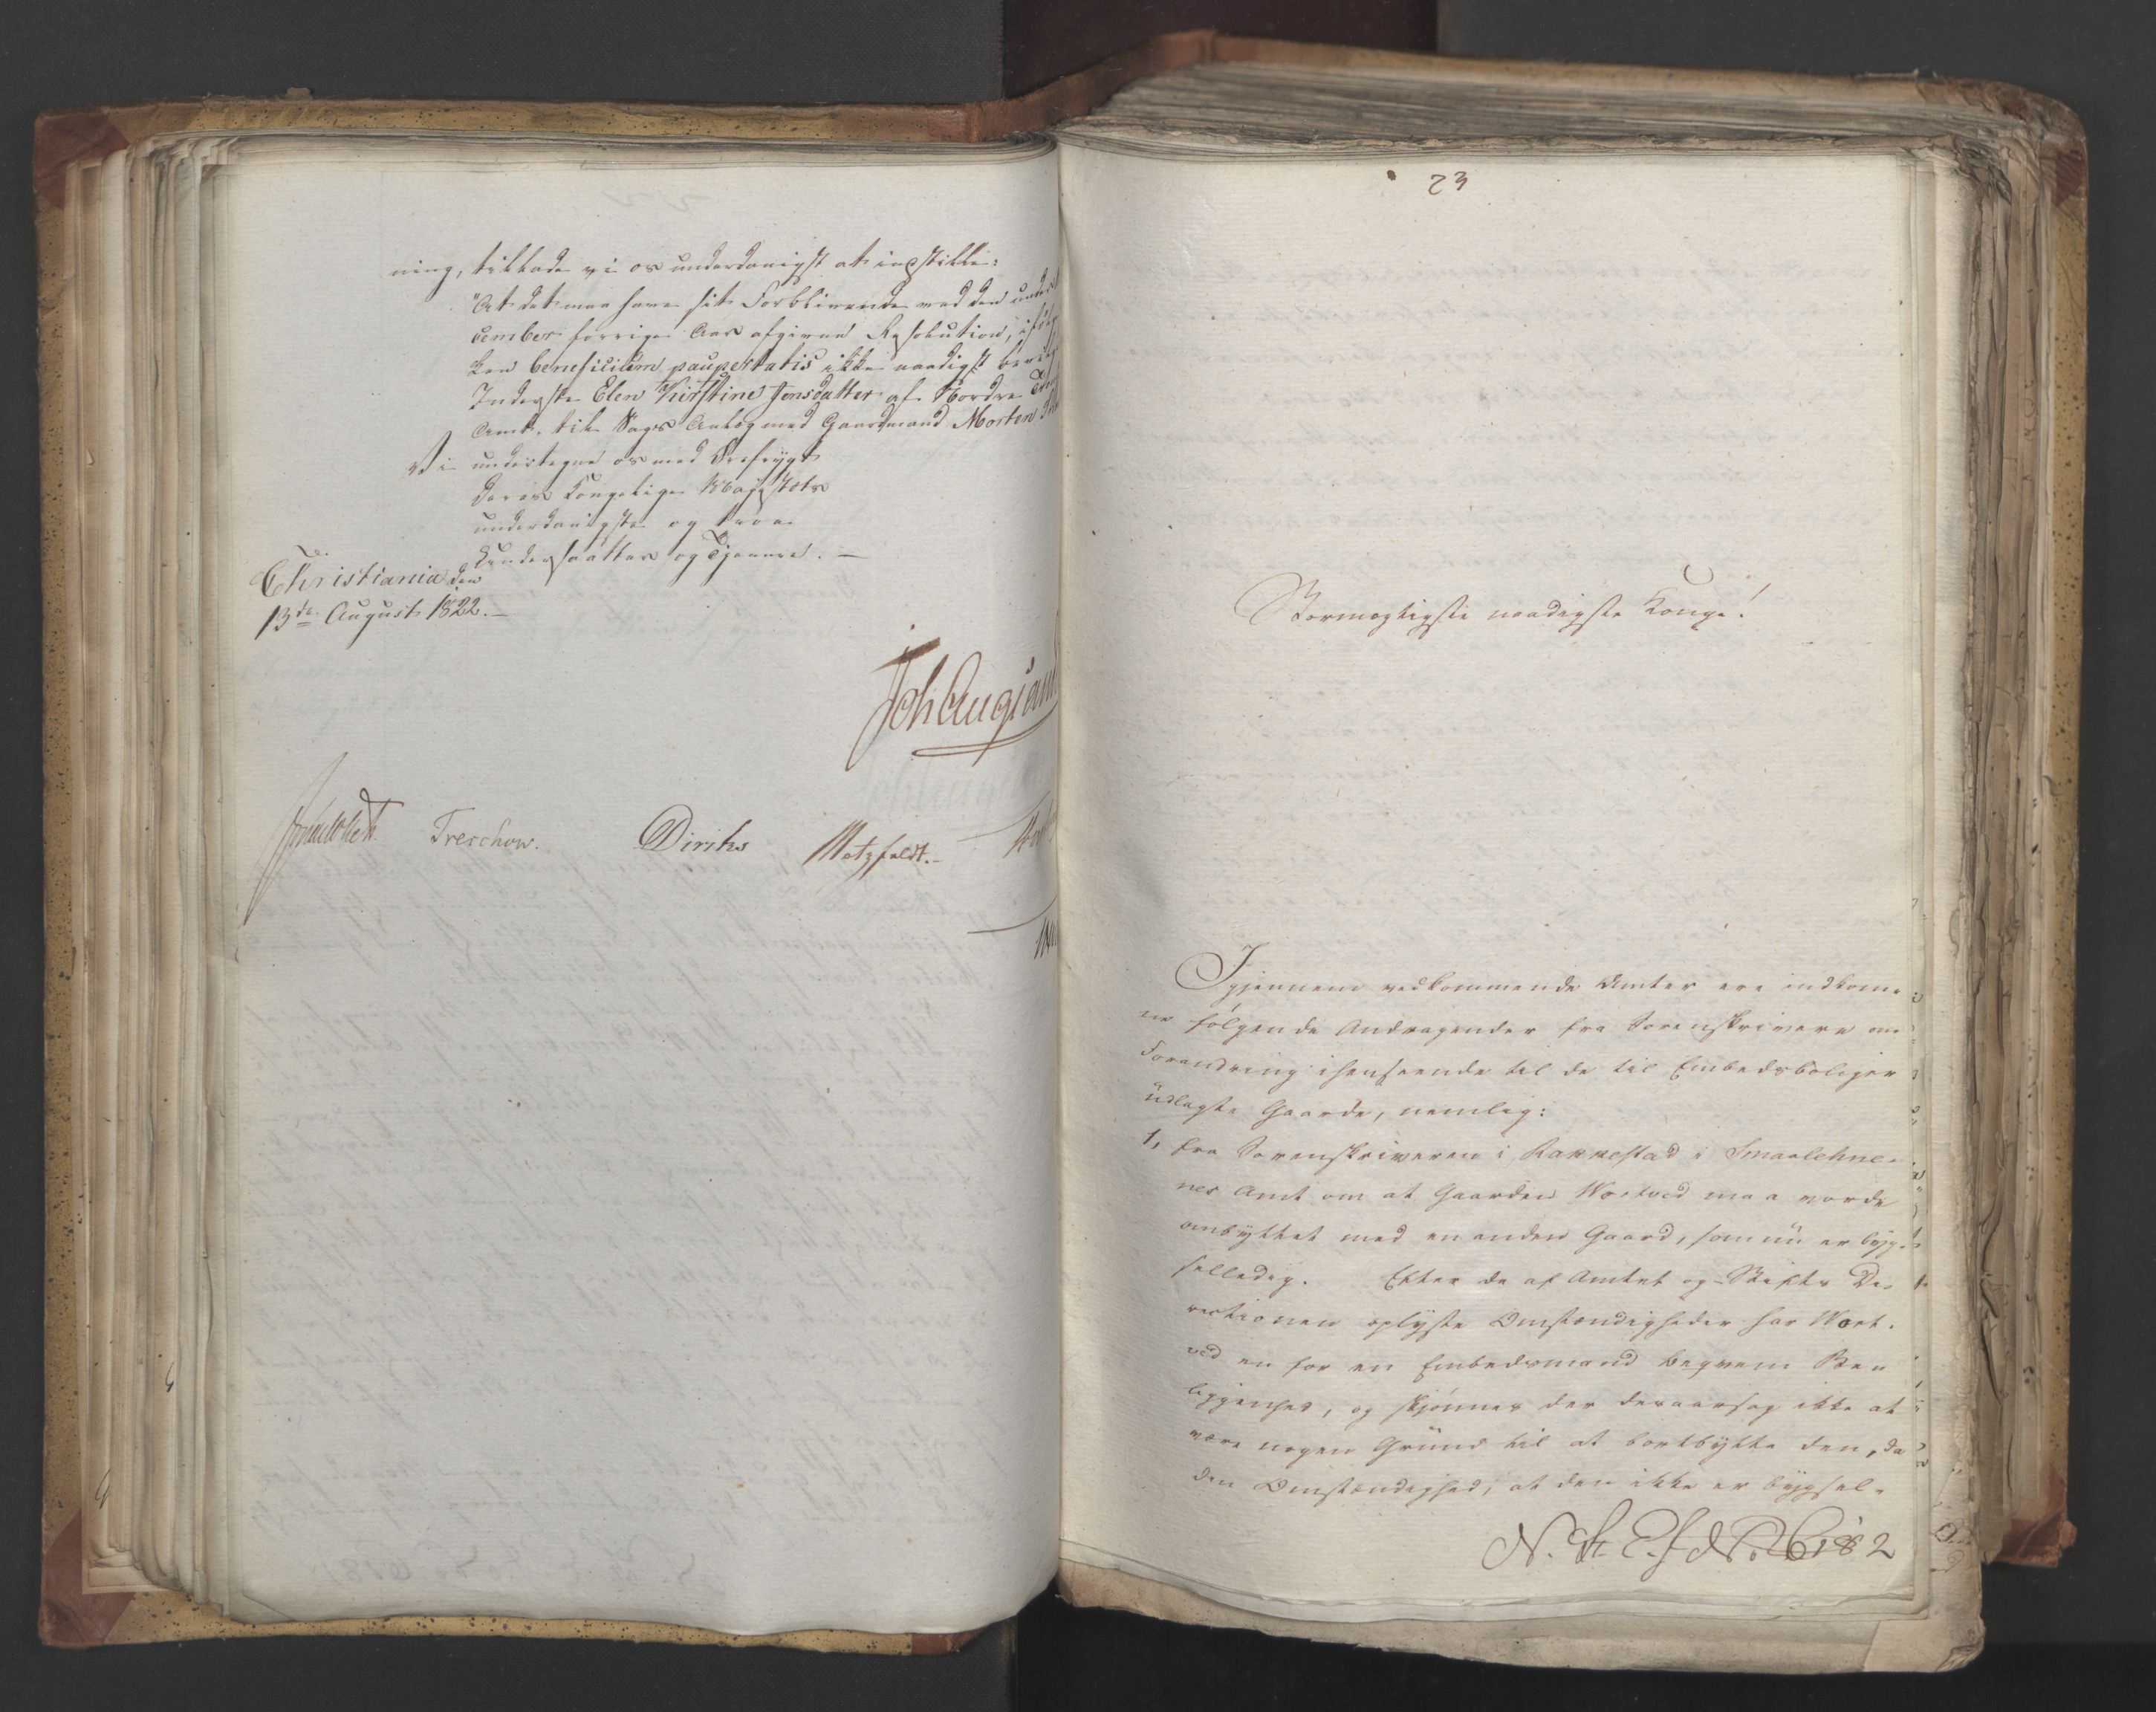 ning, tillade vi os underdanigst at indstille:
"At det maa have sit Forblivende ved den under
cember forrige Aars afgivne Resolution, ifølge
ken beneficium paupertatis ikke naadigst bevilges
Inderste Elen Kirstine Jonsdatter af Nordre
Amt, til Sags Anlæg mod Gaardmand Morten
Vi undertegne os med Ærefrygt
Deres Kongelige Majestæts
underdanigste og troe
Undersaatter og Tjenere. —
Christiania den
13de August 1822. —
Treschow.
Diriks
Motzfeldt. —
23
Stormægtigste naadigste Konge!
Igjennem vedkommende Amter ere indkom-
ne følgende Andragender fra Sorenskrivere om
Forandring i henseende til de til Embedsboliger
udlagte Gaarde, nemlig:
1, fra Sorenskriveren i Rakkestad i Smaalehne-
nes Amt om at Gaarden maa vorde
ombyttet med en anden Gaard, som nu er byg-
selledig. Efter de af Amtet og Stifts Di-
rectionen oplyste Omstændigheder har
ved en for en Embedsmand beqvem Be-
liggenhed, og skjønnes der desaarsag ikke at
være nogen Grund til at bortbytte den, da
den Omstændighed, at den ikke er bygsel-